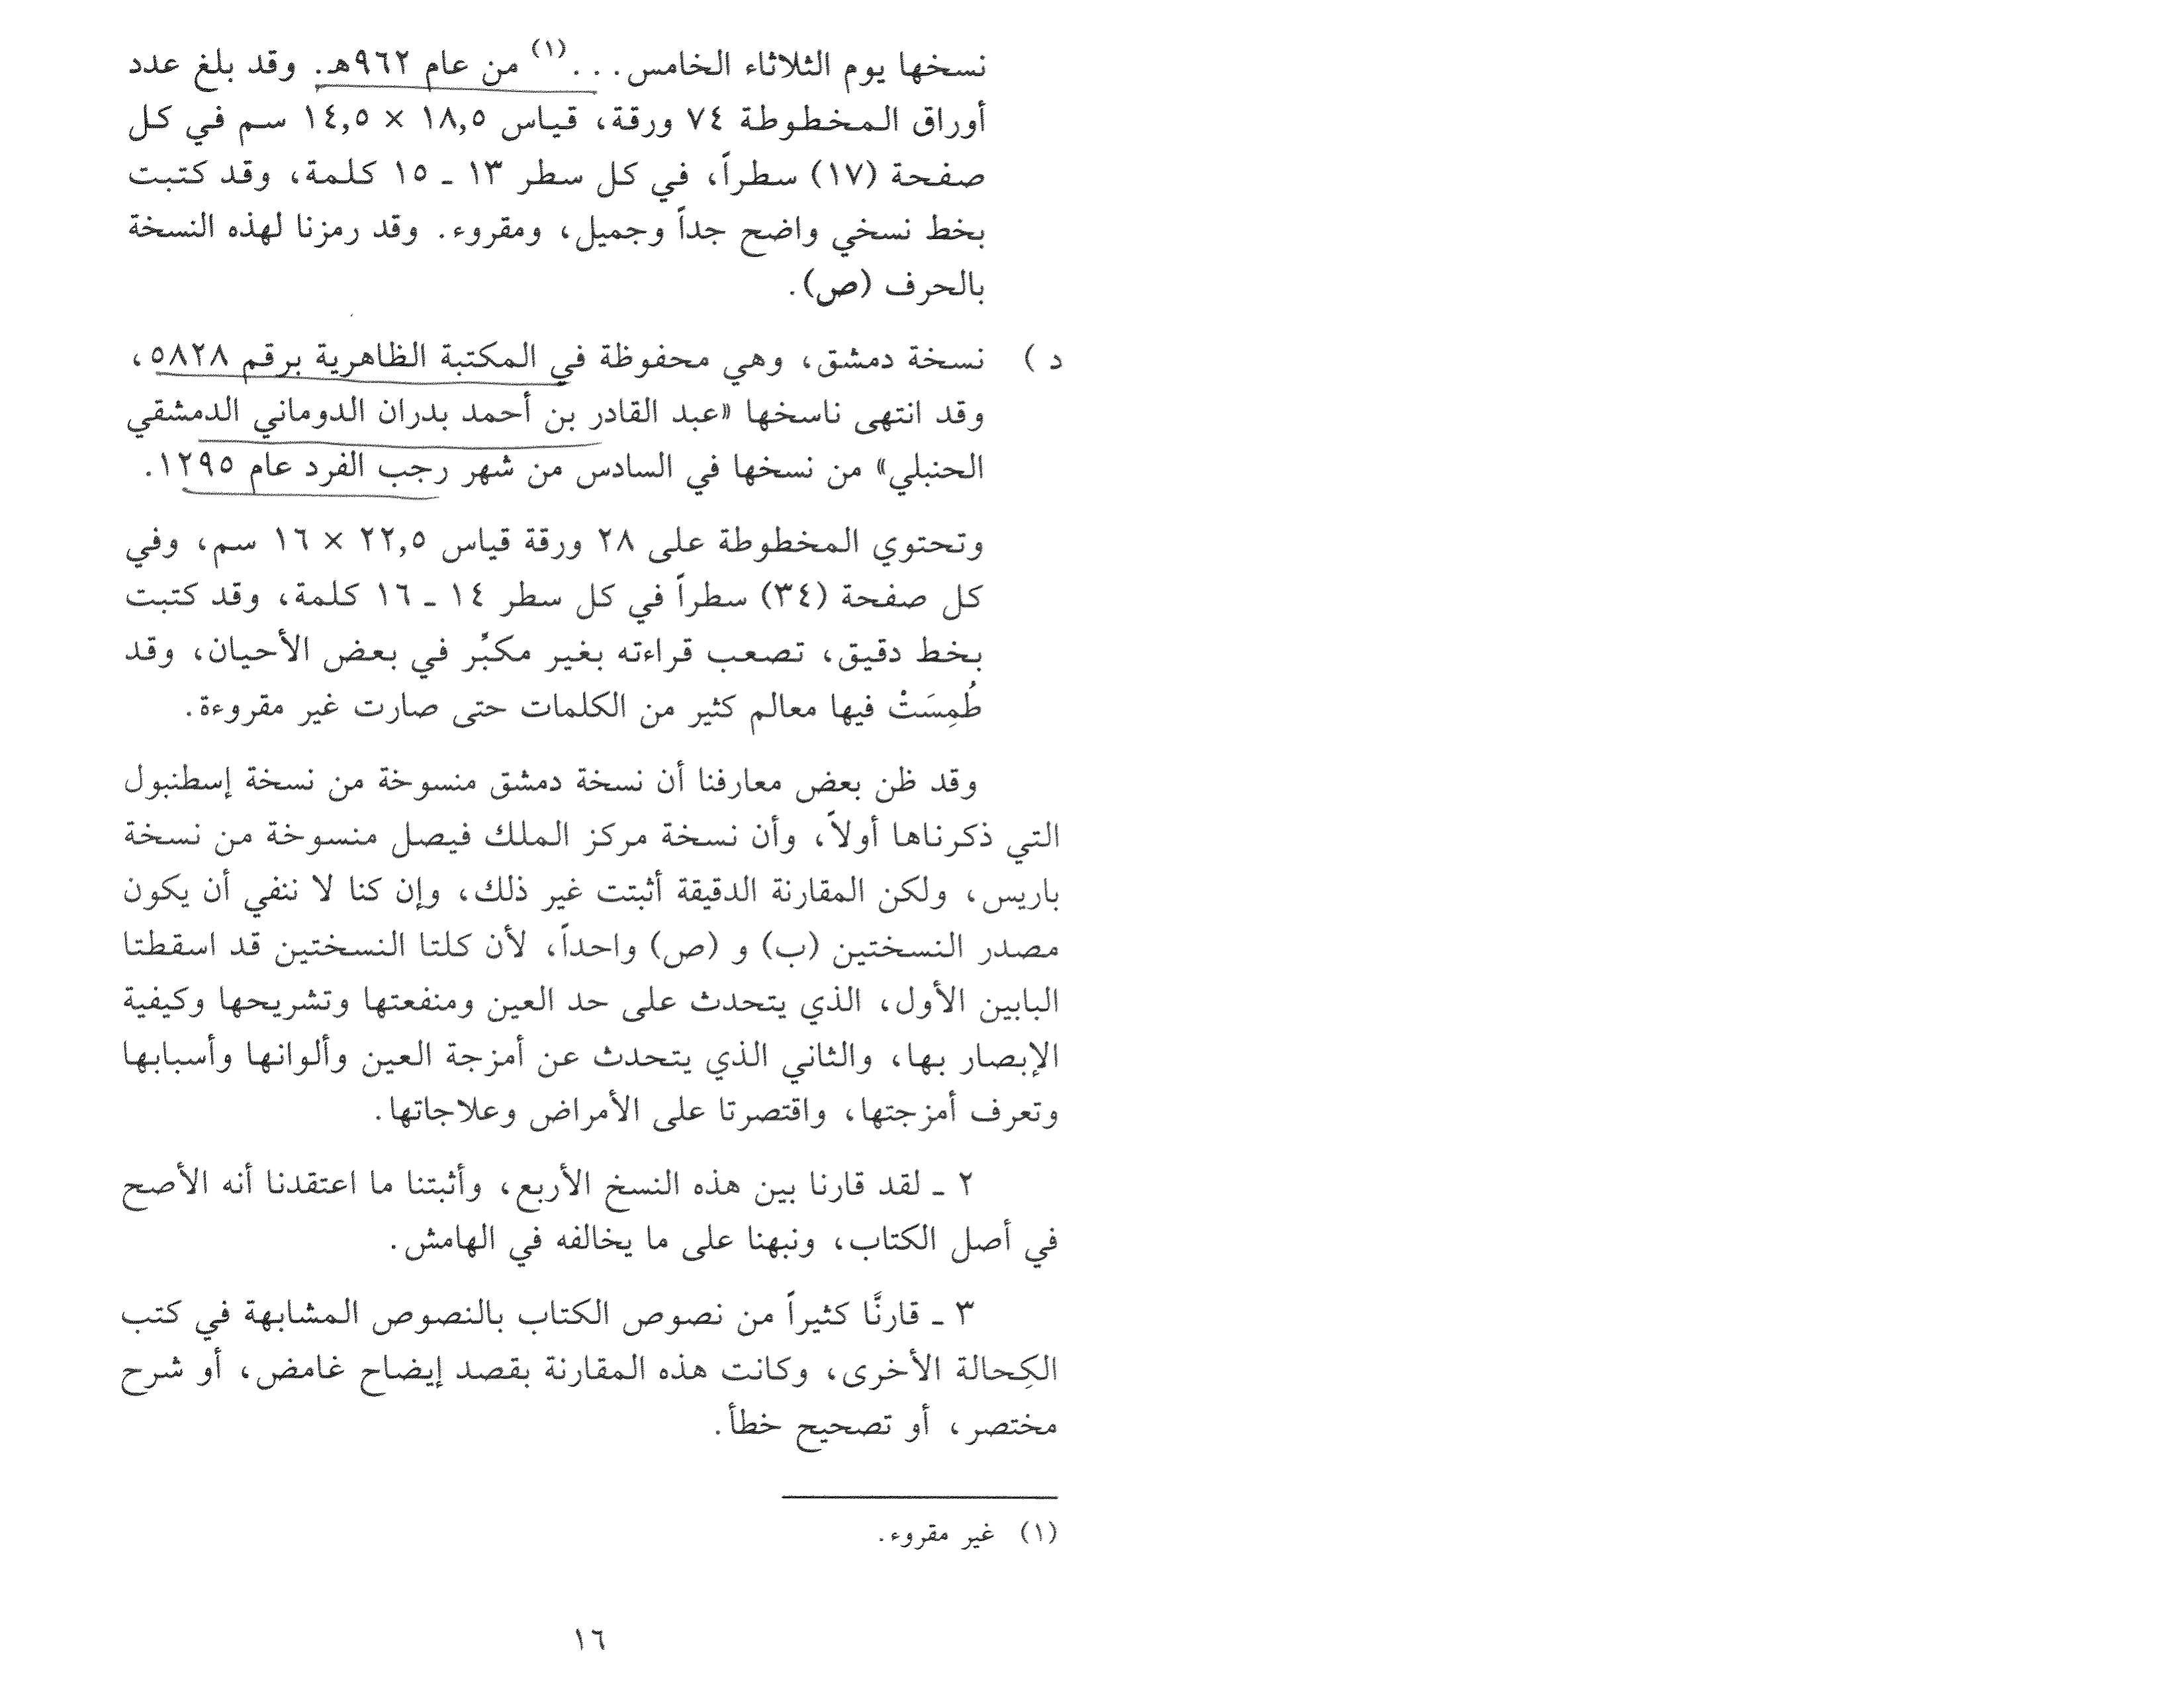 نسخها يوم الثلاثاء الخامس. . .(١) من عام ٩٦٢هـ. وقد بلغ عدد
أوراق المخطوطة ٧٤ ورقة، قياس ١٨,٥ × ١٤,٥ سم في كل
صفحة (١٧) سطراً، في كل سطر ١٣ ـ ١٥ كلمة، وقد كتبت
بخط نسخي واضح جداً وجميل، ومقروء. وقد رمزنا لهذه النسخة
بالحرف (ص).
د ) نسخة دمشق، وهي محفوظة في المكتبة الظاهرية برقم ٥٨٢٨،
وقد انتهى ناسخها «عبد القادر بن أحمد بدران الدوماني الدمشقي
الحنبلي» من نسخها في السادس من شهر رجب الفرد عام ١٢٩٥.
وتحتوي المخطوطة على ٢٨ ورقة قياس ٢٢,٥ × ١٦ سم، وفي
كل صفحة (٣٤) سطراً في كل سطر ١٤ ـ ١٦ كلمة، وقد كتبت
بخط دقيق، تصعب قراءته بغير مكبِّر في بعض الأحيان، وقد
طُمِسَتْ فيها معالم كثير من الكلمات حتى صارت غير مقروءة.
وقد ظن بعض معارفنا أن نسخة دمشق منسوخة من نسخة إسطنبول
التي ذكرناها أولاً، وأن نسخة مركز الملك فيصل منسوخة من نسخة
باريس، ولكن المقارنة الدقيقة أثبتت غير ذلك، وإن كنا لا ننفي أن يكون
مصدر النسختين (ب) و (ص) واحداً، لأن كلتا النسختين قد اسقطتا
البابين الأول، الذي يتحدث على حد العين ومنفعتها وتشريحها وكيفية
الإبصار بها، والثاني الذي يتحدث عن أمزجة العين وألوانها وأسبابها
وتعرف أمزجتها، واقتصرتا على الأمراض وعلاجاتها.
٢ ـ لقد قارنا بين هذه النسخ الأربع، وأثبتنا ما اعتقدنا أنه الأصح
في أصل الكتاب، ونبهنا على ما يخالفه في الهامش.
٣ ـ قارنَّا كثيراً من نصوص الكتاب بالنصوص المشابهة في كتب
الكِحالة الأخرى، وكانت هذه المقارنة بقصد إيضاح غامض، أو شرح
مختصر، أو تصحيح خطأ.
(١) غير مقروء.
١٦